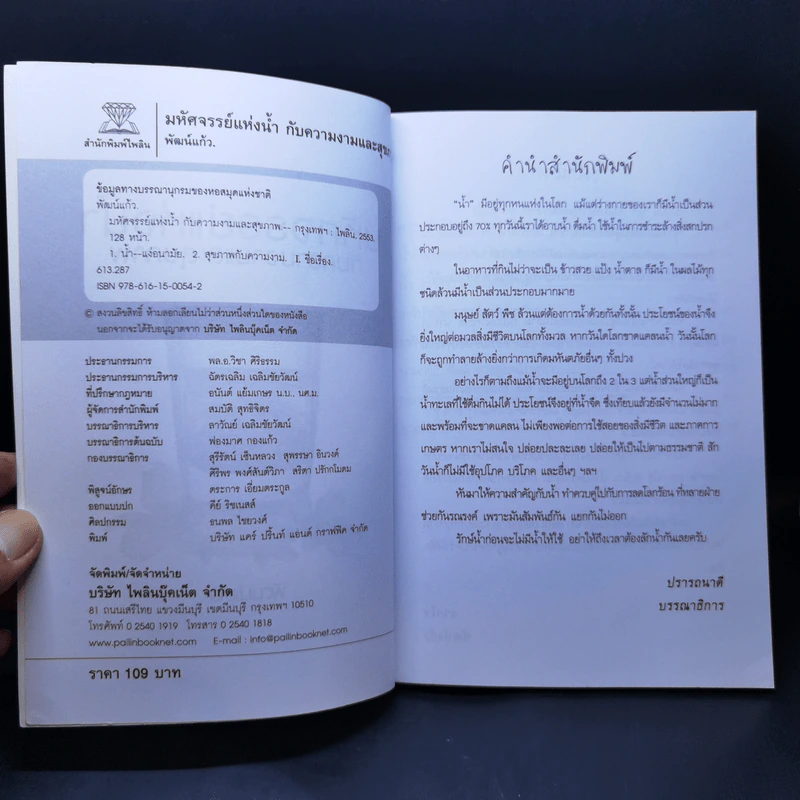 สำนักพิมพ์ไพลิน
มหัศจรรย์แห่งน้ำ กับความงามและสุขภ
พัฒน์แก้ว.
ข้อมูลทางบรรณานุกรมของหอสมุดแห่งชาติ
พัฒน์แก้ว.
มหัศจรรย์แห่งน้ำ กับความงามและสุขภาพ.-- กรุงเทพฯ : ไพลิน, 2553.
128 หน้า.
1. น้ำ--แง่อนามัย. 2. สุขภาพกับความงาม. I. ชื่อเรื่อง.
613.287
ISBN 978-616-15-0054-2
© สงวนลิขสิทธิ์ ห้ามลอกเลียนไม่ว่าส่วนหนึ่งส่วนใดของหนังสือ
นอกจากจะได้รับอนุญาตจาก บริษัท ไพลินบุ๊คเน็ต จำกัด
ประธานกรรมการ พล.อ.วิชา ศิริธรรม
ประธานกรรมการบริหาร ฉัตรเฉลิม เฉลิมชัยวัฒน์
ที่ปรึกษากฎหมาย อนันต์ แย้มเกษร น.บ., นศ.ม.
ผู้จัดการสำนักพิมพ์ สมบัติ สุทธิจิตร
บรรณาธิการบริหาร ลาวัณย์ เฉลิมชัยวัฒน์
บรรณาธิการต้นฉบับ ฟองมาศ กองแก้ว
กองบรรณาธิการ สุรีรัตน์ เซ็นหลวง สุพรรษา อินวงค์
ศิริพร พงศ์สันต์วิภา สริตา ปรักกโมดม
พิสูจน์อักษร ตระการ เอี่ยมตระกูล
ออกแบบปก คีย์ ริชเนสส์
ศิลปกรรม ธนพล ไชยวงค์
พิมพ์ บริษัท แคร์ ปริ้นท์ แอนด์ กราฟฟิค จำกัด
จัดพิมพ์/จัดจำหน่าย
บริษัท ไพลินบุ๊คเน็ต จำกัด
81 ถนนเสรีไทย แขวงมีนบุรี เขตมีนบุรี กรุงเทพฯ 10510
โทรศัพท์ 0 2540 1919 โทรสาร 0 2540 1818
www.pailinbooknet.com E-mail : info@pailinbooknet.com
ราคา 109 บาท
คำนำสำนักพิมพ์
“น้ำ” มีอยู่ทุกหนแห่งในโลก แม้แต่ร่างกายของเราก็มีน้ำเป็นส่วน
ประกอบอยู่ถึง 70% ทุกวันนี้เราได้อาบน้ำ ดื่มน้ำ ใช้น้ำในการชำระล้างสิ่งสกปรก
ต่างๆ
ในอาหารที่กินไม่ว่าจะเป็น ข้าวสวย แป้ง น้ำตาล ก็มีน้ำ ในผลไม้ทุก
ชนิดล้วนมีน้ำเป็นส่วนประกอบมากมาย
มนุษย์ สัตว์ พืช ล้วนแต่ต้องการน้ำด้วยกันทั้งนั้น ประโยชน์ของน้ำจึง
ยิ่งใหญ่ต่อมวลสิ่งมีชีวิตบนโลกทั้งมวล หากวันใดโลกขาดแคลนน้ำ วันนั้นโลก
ก็จะถูกทำลายล้างยิ่งกว่าการเกิดมหันตภัยอื่นๆ ทั้งปวง
อย่างไรก็ตามถึงแม้น้ำจะมีอยู่บนโลกถึง 2 ใน 3 แต่น้ำส่วนใหญ่ก็เป็น
น้ำทะเลที่ใช้ดื่มกินไม่ได้ ประโยชน์จึงอยู่ที่น้ำจืด ซึ่งเทียบแล้วยังมีจำนวนไม่มาก
และพร้อมที่จะขาดแคลน ไม่เพียงพอต่อการใช้สอยของสิ่งมีชีวิต และภาคการ
เกษตร หากเราไม่สนใจ ปล่อยปละละเลย ปล่อยให้เป็นไปตามธรรมชาติ สัก
วันน้ำก็ไม่มีใช้อุปโภค บริโภค และอื่นๆ ฯลฯ
หันมาให้ความสำคัญกับน้ำ ทำควบคู่ไปกับการลดโลกร้อน ที่หลายฝ่าย
ช่วยกันรณรงค์ เพราะมันสัมพันธ์กัน แยกกันไม่ออก
รักษ์น้ำก่อนจะไม่มีน้ำให้ใช้ อย่าให้ถึงเวลาต้องลักน้ำกันเลยครับ
ปรารถนาดี
บรรณาธิการ